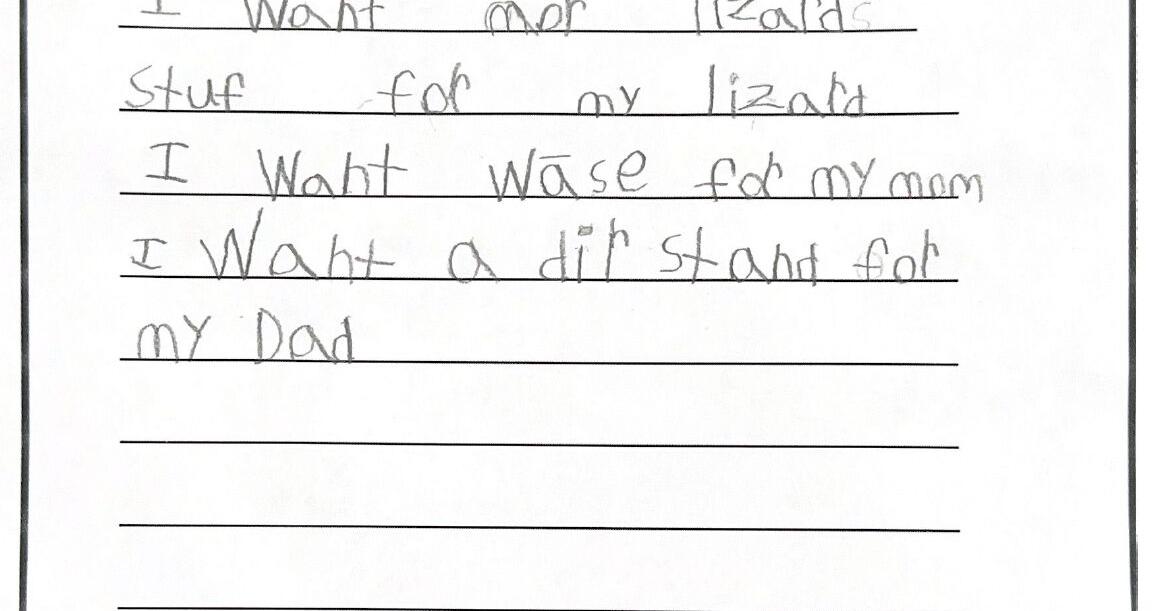 I want mor lizards
stuf for my lizard
I want wāse for my mom
I want a dir stand for
my Dad